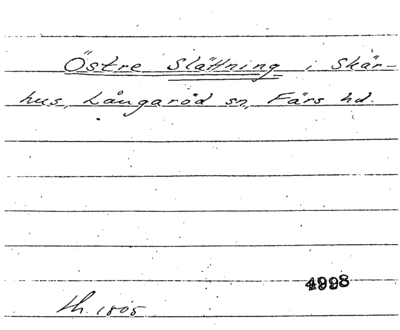 Östre Slättning i Skär-
hus, Långaröd sn, Färs hd.
4998
th. 1805